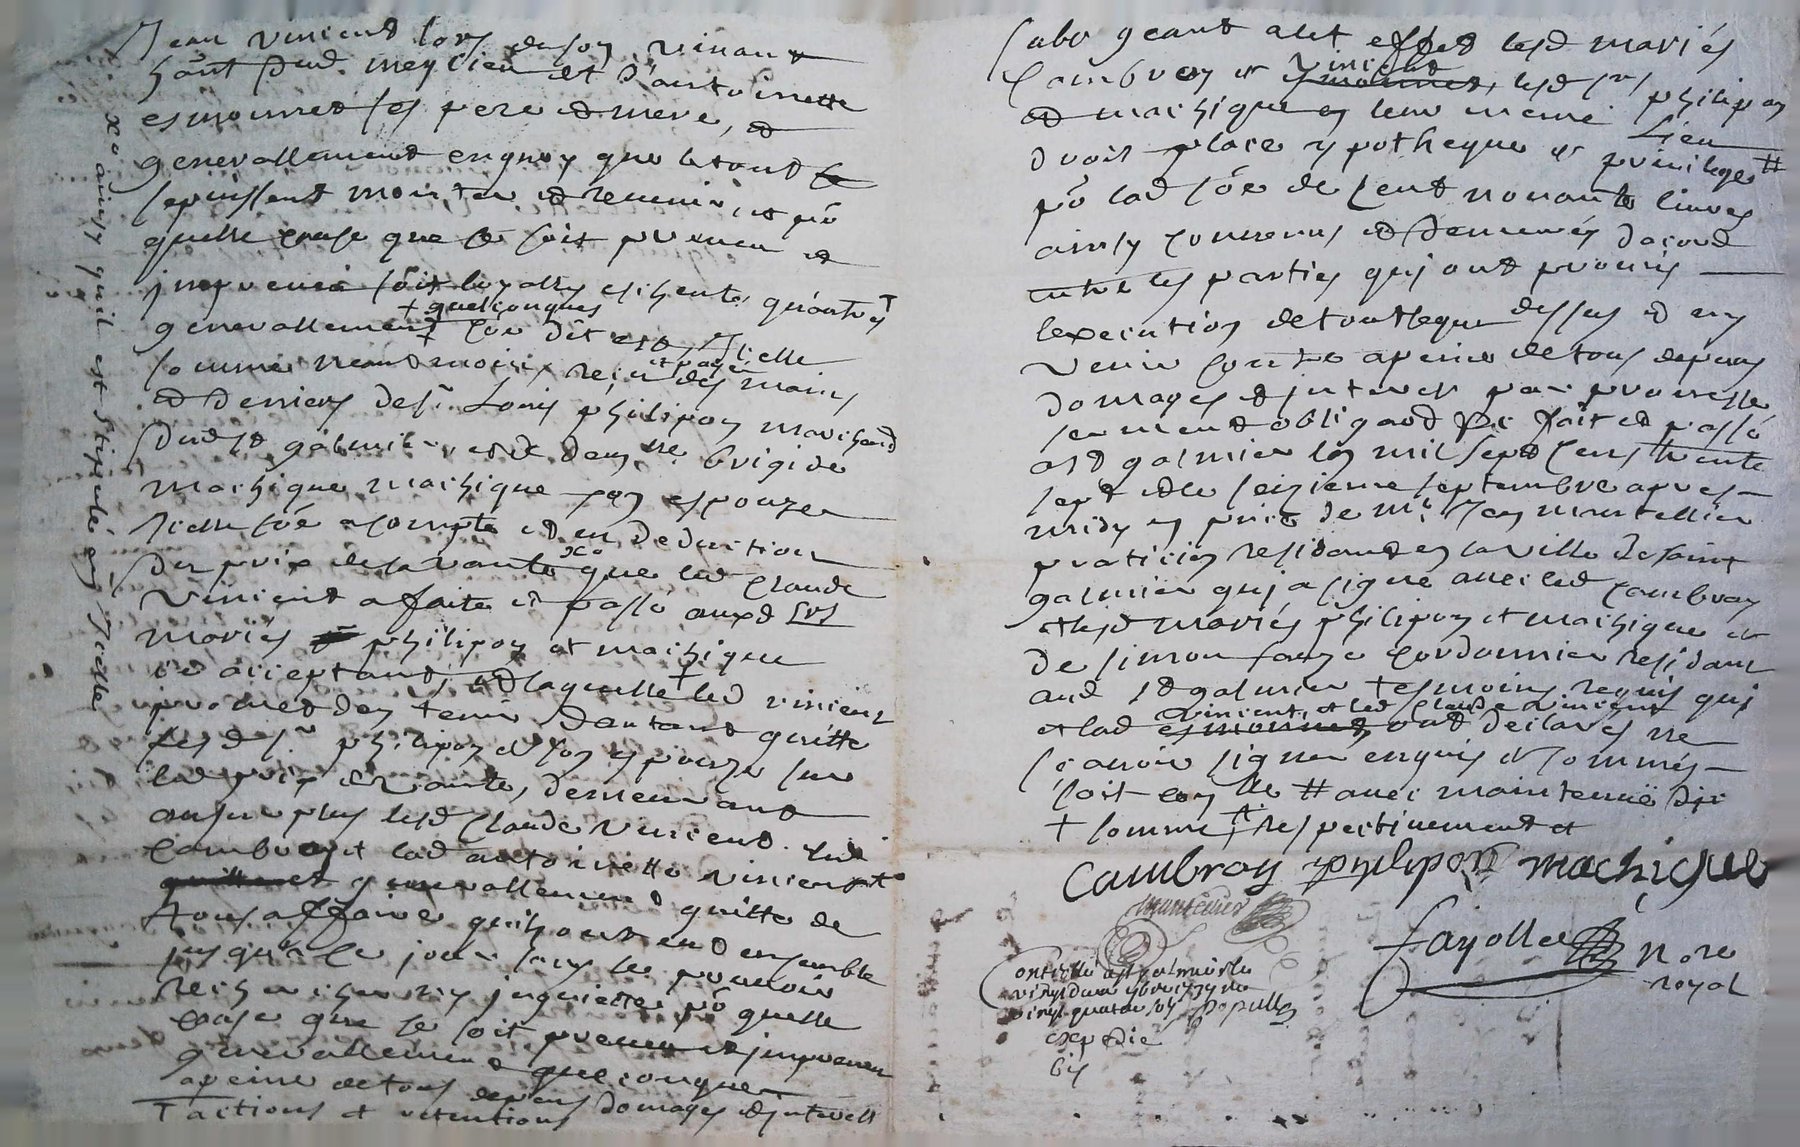 Jean vincent lors de son vivant
hāt dud. meylieu et d'antoinette
esmonnet ses pere et mere, et
generallement en quoy que le tout se
se puissent monter et revenir, et po
quelle cause que ce soit preveu et
inpreveu soit loyalles
+ quelconques
generallement
somme neantmoins receu des mains
et payé
et deniers de sr. Louis philipon marchand
dud st galmier, et de dam.lle brigide
machique machique son espouze
icelle soē a compte et en deduction
du prix de la vante xo que led claude
vincent a faite et passé auxd srs
mariés philipon et machique
ce acceptant, et laquelle + led vincent
promet den tenir dautant quitte
lesd sr philipon et son espouze sur
led prix de vante, demeurant
au surplus lesd claude vincent led
cambray et lad antoinette vincent
generallement quitte de
tous affaire quils ont eud ensemble
jusqua ce jour sans se pouvoir
rechercher ny inquietter po quelle
cause que ce soit preveu et inpreveu
generallement quelconque
a peine de tous depens domages et interest
T actions et retentions
xo ainsy quil est stipulé en icelle
subrogeant a cet effet lesd mariés
Cambray et vincent lesd srs philipon
et machique en leur meme lieu
droit place ypotheque et privilege #
po lad soē de cent nonante livres
ainsy convenus et demeurés dacord
entre les parties qui ont promis
lexecution de tout le que dessus et ny
venir contre a peine de tous depens
domages et interest par promesse
serment obligaō &c fait et passé
a st galmier lan mil sept cens trente
sept et le seizieme septembre apres
midy en pñce de me. Jean montellier
praticien residant en la ville de saint
galmier qui a signé avec led cambray
et lesd mariés philipon et machique et
de simon fauze cordonnier residant
aud st galmier tesmoins requis qui
vincent, et led claude vincent
et lad ont declarés ne
scavoir signer enquis et sommés
soit # avec maintenüe dji
+ somme, + respectivement et
Cambray phylipon machique
montellier
fayolle Nore
royal
Controllé a st galmier le
vingt deux 7bre 1737 reçu
vingt quatre sols
expedié
bis